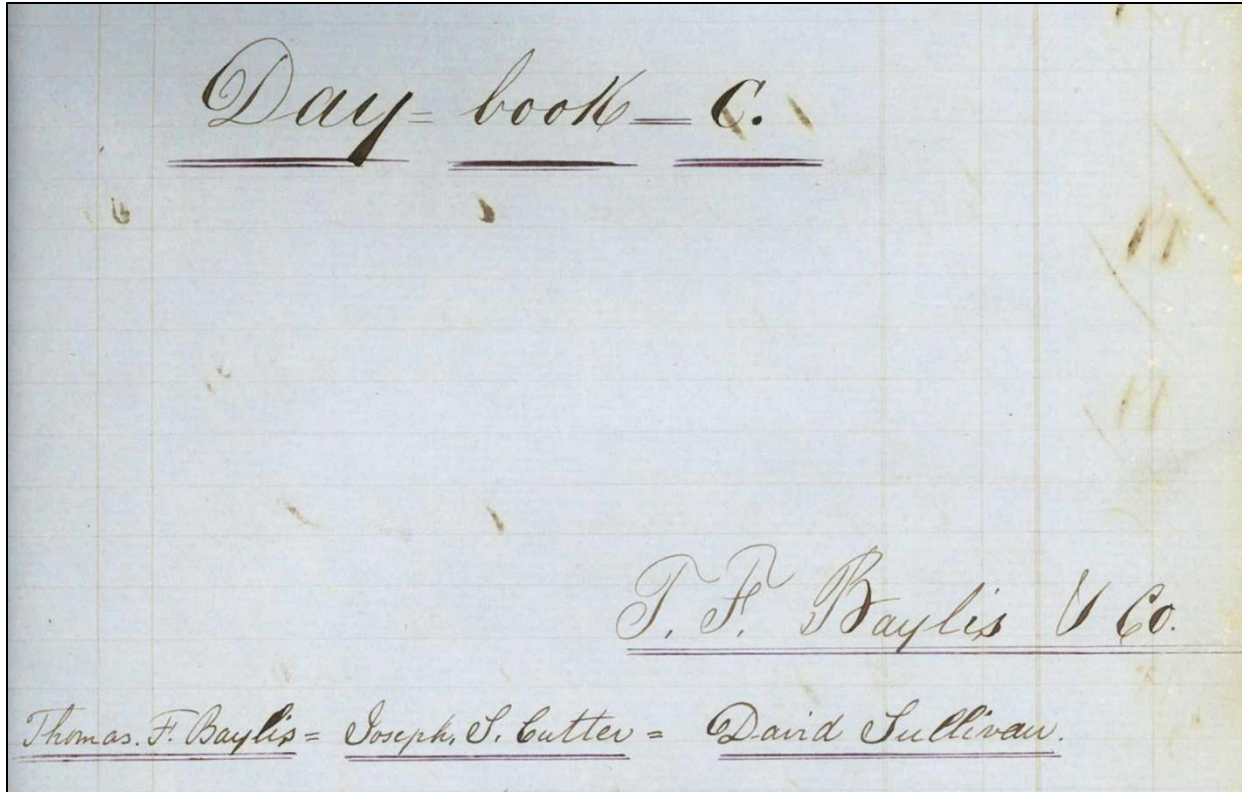 Day = book = C.
T. F. Baylis & Co.
Thomas. F. Baylis = Joseph. S. Cutter = David Sullivan.